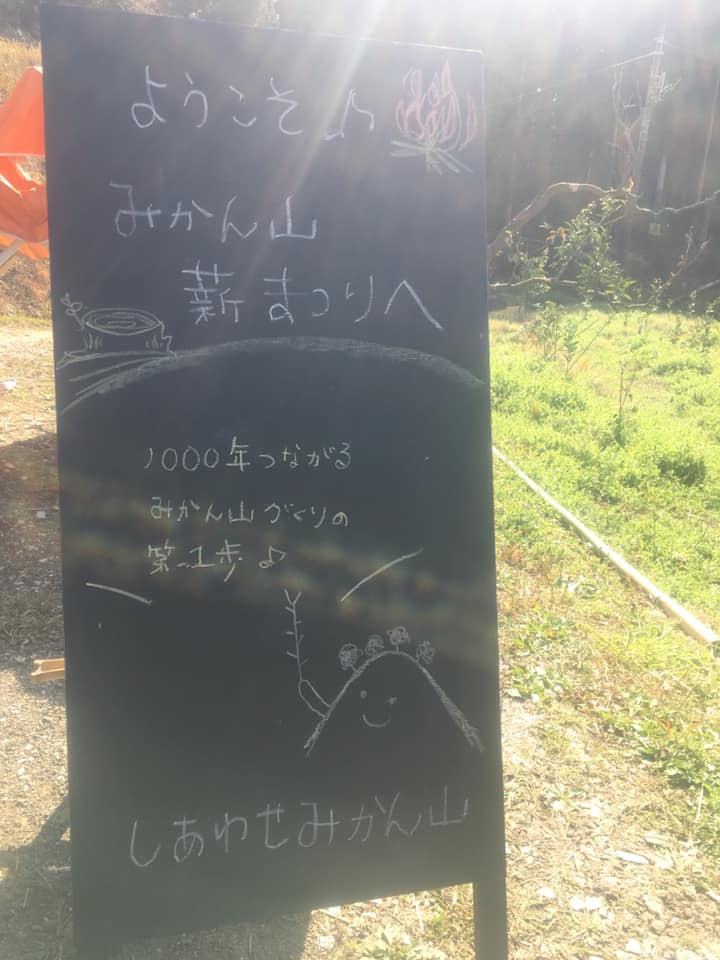 ようこそ♪
みかん山
薪まつりへ
1000年つながる
みかん山づくりの
第1歩♪
しあわせみかん山